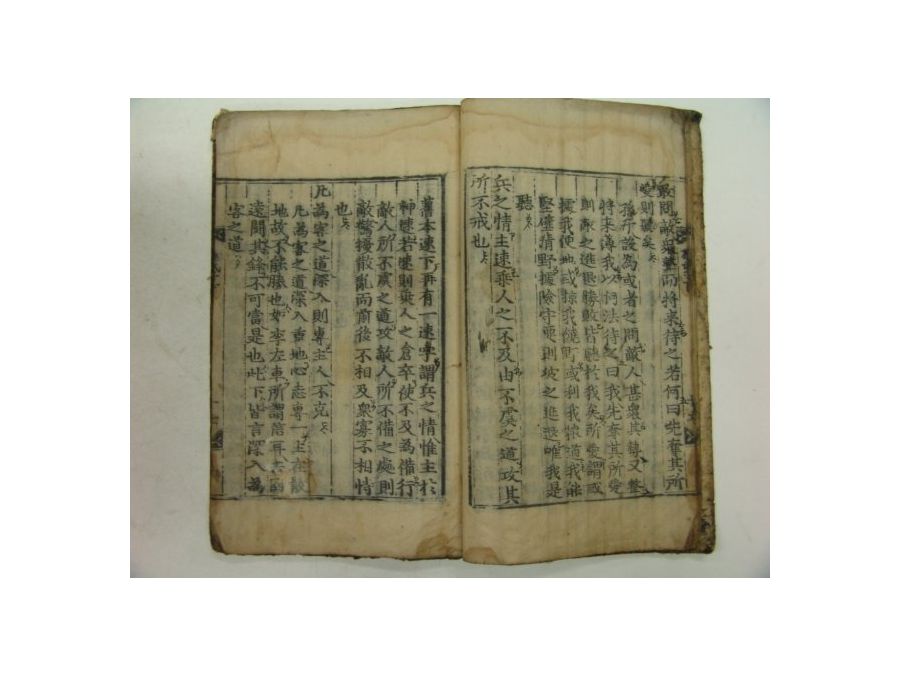 敢問敵衆整而將來待之若何曰先奪其所
愛則聽矣
孫子設為或者之問敵人甚衆其勢又整
將来薄我以何法待之曰我先奪其所愛
則敵之進退勝敗皆聽於我矣所愛謂或
據我便地或掠我饒野或利我粮道我能
堅壁清野據險守要則彼之進退唯我是
聽
兵之情主速乘人之不及由不虞之道攻其
所不戒也
舊本速下再有一速字謂兵之情惟主於
神速若速則乘人之倉卒使不及為備行
敵人所不虞之道攻敵人所不備之處則
敵驚擾散亂而前後不相及衆寡不相恃
也
凡為客之道深入則專主人不克
凡為客之道深入重地心志專一主在散
地故不能勝也如李左車所謂信耳去國
遠鬪其鋒不可當是也此下皆言深入為
客之道